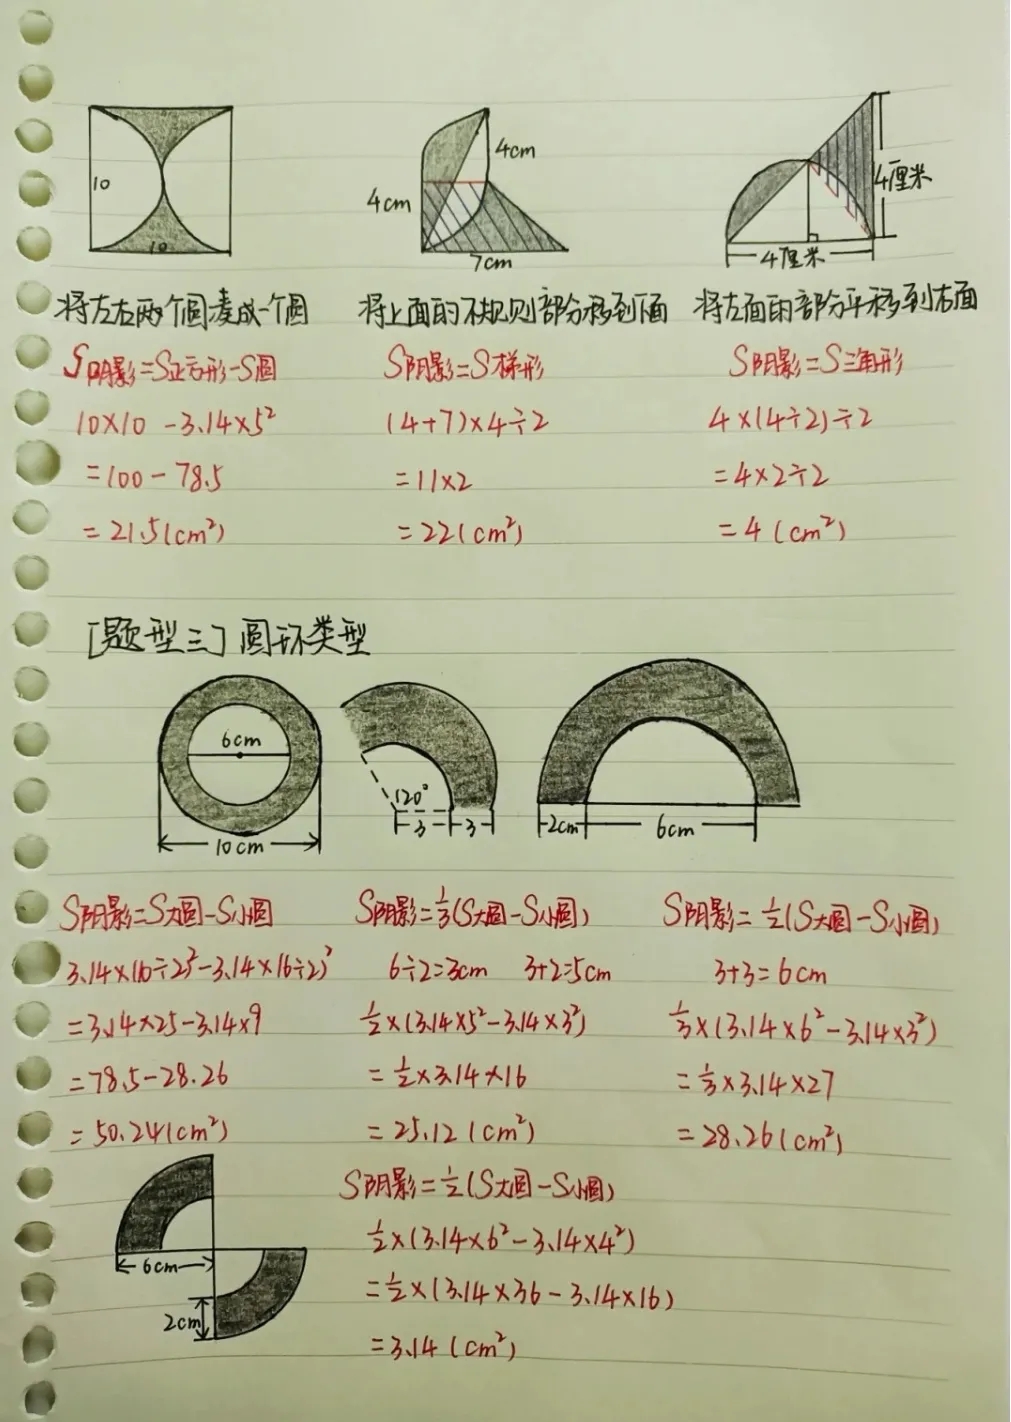 10
10
4cm
4cm
7cm
4厘米
4厘米
将左右两个圆凑成一个圆
S阴影=S正方形-S圆
10×10 -3.14×5²
=100-78.5
=21.5(cm²)
将上面的不规则部分移到下面
S阴影=S梯形
(4+7)×4÷2
=11×2
=22(cm²)
将左面的部分平移到右面
S阴影=S三角形
4×(4÷2)÷2
=4×2÷2
=4(cm²)
[题型三]圆环类型
6cm
10cm
120°
3
3
2cm
6cm
S阴影=S大圆-S小圆
3.14×(10÷2)²-3.14×(6÷2)²
=3.14×25-3.14×9
=78.5-28.26
=50.24(cm²)
S阴影=⅓(S大圆-S小圆)
6÷2=3cm 3+2=5cm
½×(3.14×5²-3.14×3²)
=½×3.14×16
=25.12(cm²)
S阴影=½(S大圆-S小圆)
3+3=6cm
⅓×(3.14×6²-3.14×3²)
=⅓×3.14×27
=28.26(cm²)
6cm
2cm
S阴影=½(S大圆-S小圆)
½×(3.14×6²-3.14×4²)
=½×(3.14×36-3.14×16)
=3.14(cm²)